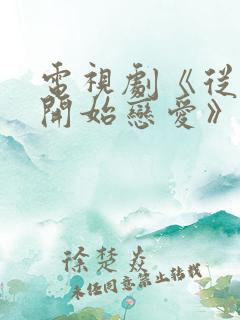 電視劇《從
開始戀愛》
徐楚焱
未经同意禁止转载